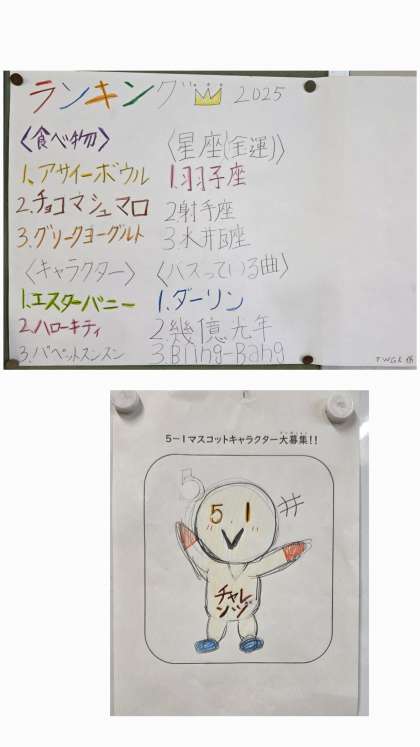 ランキング 2025
〈食べ物〉
1、アサイーボウル
2.チョコマシュマロ
3.グリークヨーグルト
〈星座(金運)〉
1.羽子座
2射手座
3.水井瓦座
〈キャラクター〉
1.エスターバニー
2.ハローキティ
3.パペットスンスン
〈バズっている曲〉
1.ダーリン
2幾億光年
3Bling-Bang
5−1マスコットキャラクター大募集!!
5
5 1
チャレ
ンジ